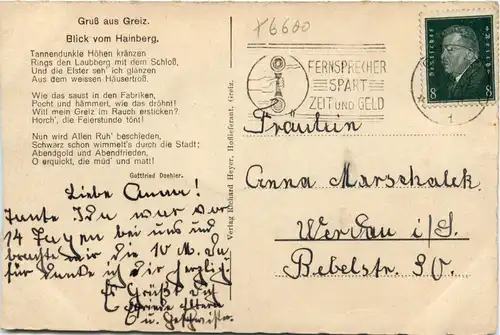 Gruß aus Greiz.
Blick vom Hainberg.
Tannendunkle Höhen kränzen
Rings den Laubberg mit dem Schloß,
Und die Elster seh' ich glänzen
Aus dem weissen Häusertroß.
Wie das saust in den Fabriken,
Pocht und hämmert, wie das dröhnt!
Will mein Greiz im Rauch ersticken?
Horch', die Feierstunde tönt!
Nun wird Allen Ruh' beschieden,
Schwarz schon wimmelt's durch die Stadt;
Abendgold und Abendfrieden,
O erquickt, die müd' und matt!
Gottfried Doehler.
Liebe Anna!
Tante Ida war vor
14 Tagen bei uns und
brachte mir die 10 M. Da-
für danke ich dir herzlich.
Es Grüßt dich
Eltern
u. Geschwister
Verlag Richard Heyer, Hoflieferant, Greiz.
x6600
FERNSPRECHER
SPART
ZEIT UND GELD
Deutsches Reich
8 8
1
Fräulein
Anna Marschalek
Werdau i/S.
Bebelstr. 30.